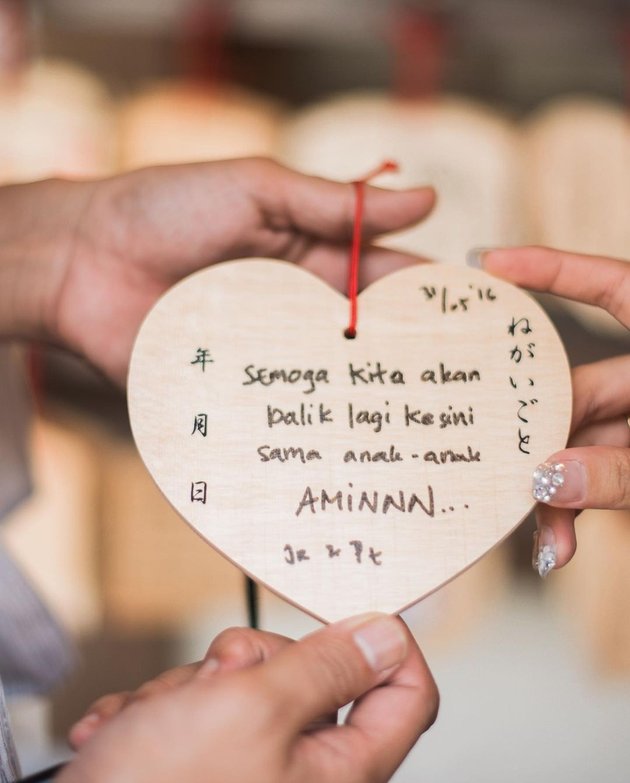 31/05'16
ねがいごと
SEMOGA Kita akan
balik lagi kesini
sama anak-anak
AMiNNN...
Je & Pt
年
月
日